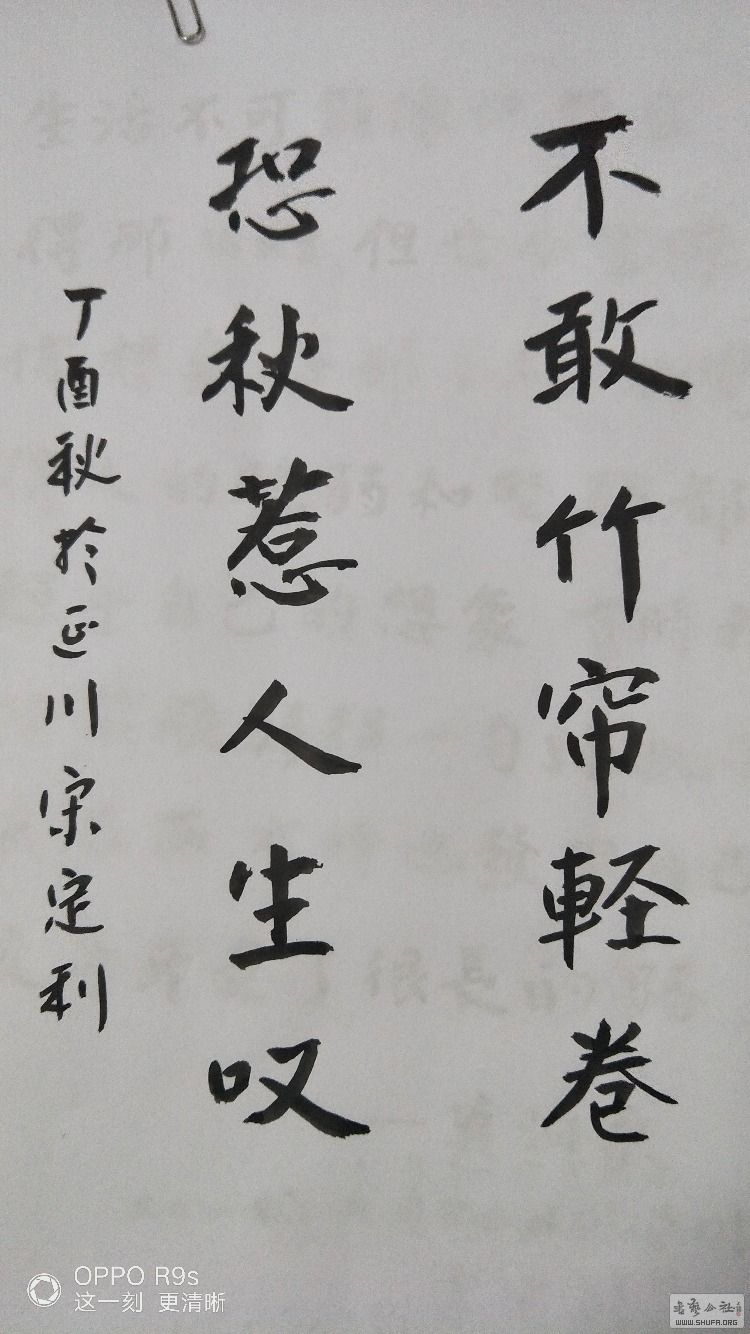 不敢竹帘軽卷
恐秋惹人生叹
丁酉秋於延川宋定利
OPPO R9s
这一刻 更清晰
书艺公社
WWW.SHUFA.ORG